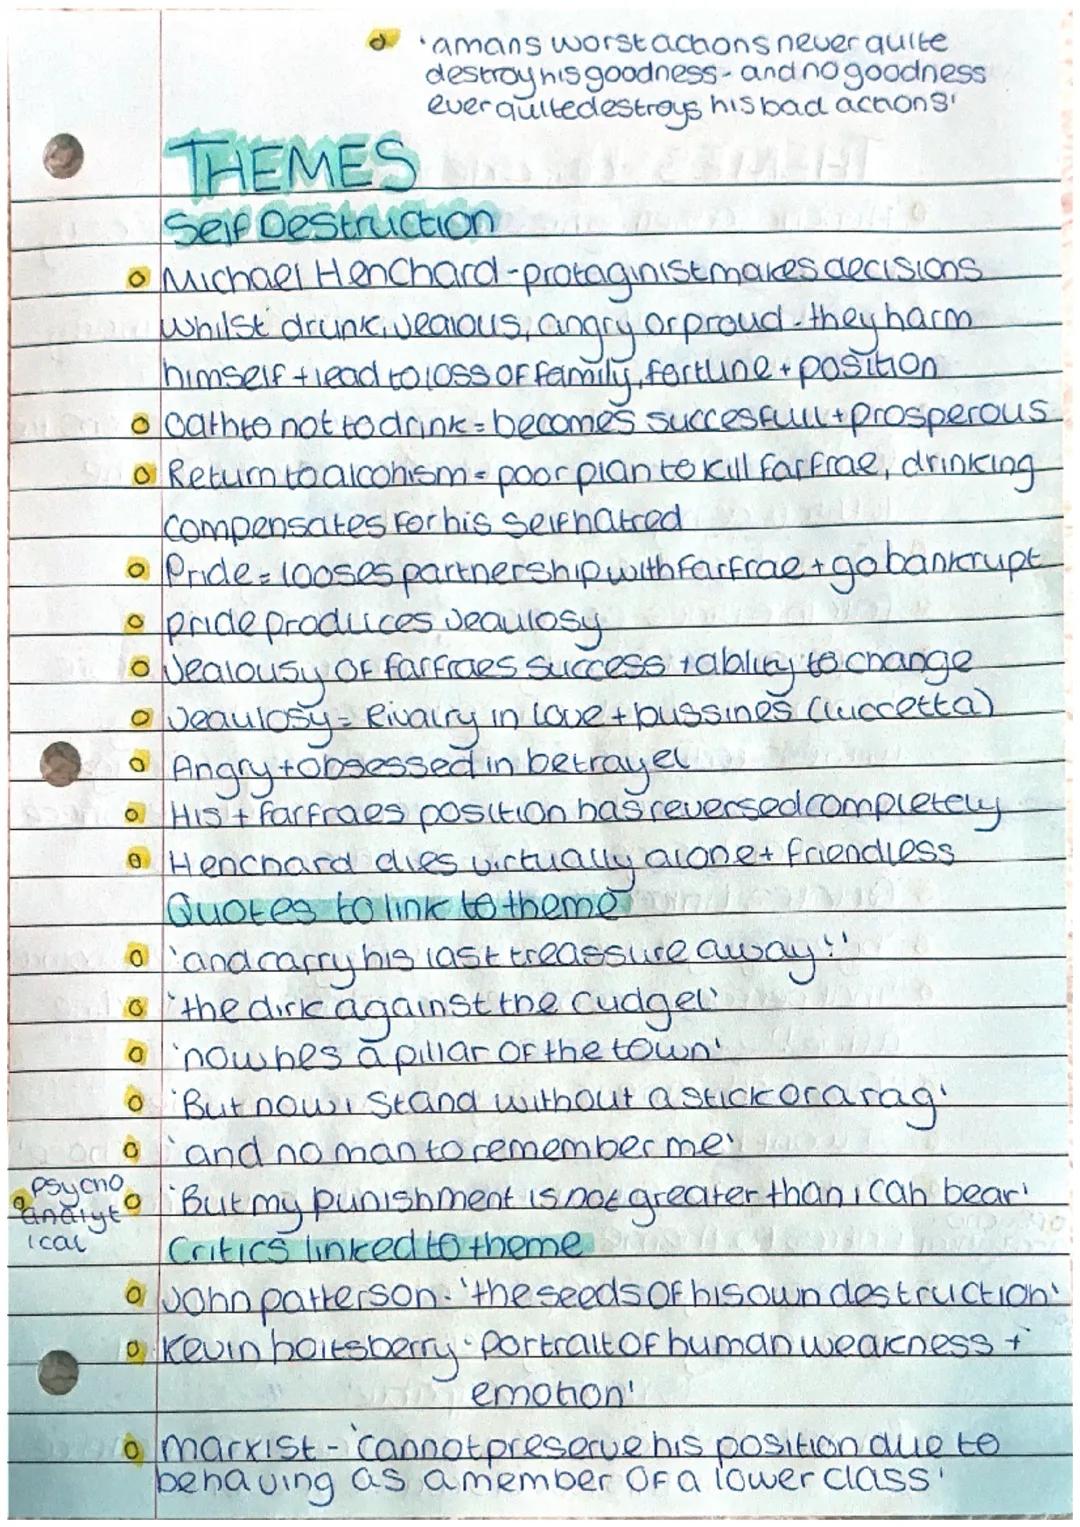 'a mans worst actions never quite
destroy his goodness - and no goodness
ever quite destroys his bad actions'
THEMES
Self Destruction
Michael Henchard - protaginist makes decisions
whilst drunk, jealous, angry or proud - they harm
himself + lead to loss of family, fortune + position
Oath to not to drink = becomes succesfull + prosperous
Return to alcohism = poor plan to kill farfrae, drinking
compensates for his self hatred
Pride = looses partnership with farfrae + go bankrupt
pride produces jeaulosy
Jealousy of farfraes success + ablity to change
Jeaulosy = Rivalry in love + bussines (luccetta)
Angry + obsessed in betrayel
His + farfraes position has reversed completely
Henchard dies virtually alone + friendless
Quotes to link to theme
'and carry his last treassure away!'
'the dirk against the cudgel'
'now hes a pillar of the town'
'But now i stand without a stick or a rag'
'and no man to remember me'
psycho
analyt
ical
'But my punishment is not greater than i can bear'
Critics linked to theme
John patterson - 'the seeds of his own destruction'
Kevin haitsberry - portrait of human weakness +
emotion'
marxist - 'cannot preserve his position due to
behaving as a member of a lower class'